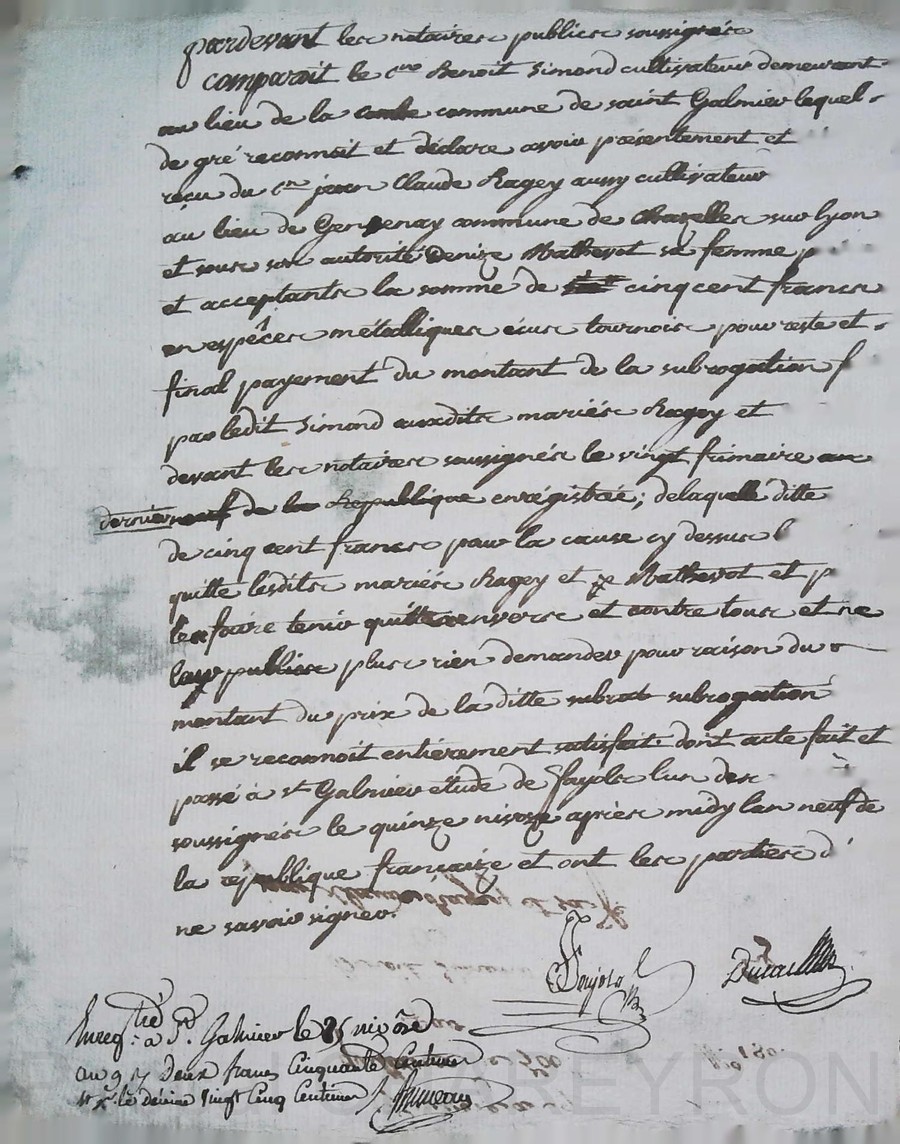 pardevant les notaires publics soussignés
comparoit le c.en Benoit Simond cultivateur demeurant
au lieu de la commune de saint Galmier lequel
de gré reconnoit et déclare avoir présentement et
reçu du c.en jean Claude Ragey aussy cultivateur
au lieu de commune de Chazelles sur lyon
et sous son autorité Denize Mathevot sa femme p
et acceptants la somme de cinq cent francs
en espêces métalliques écus tournois pour reste et
final payement du montant de la subrogation f
par ledit Simond auxdits mariés Ragey et
devant les notaires soussignés le vingt frimaire
dernier neuf de la Republique enrégistrée; de laquelle ditte
de cinq cent francs pour la cause cy dessus l
quitte lesdits mariés Ragey et Mathevot et p
les faire tenir quittes envers et contre tous et ne
publics plus rien demander pour raison du
montant du prix de la ditte subrogation
il se reconnoit entiérement satisfait. dont acte fait et
passé à st Galmier étude de fayols l'un des
soussignés le quinze nivose après midy l'an neuf de
la république française et ont les parties d
ne savoir signer.
Enreg.tré à S.t Galmier le 25 nivôse
an 9 Deux francs Cinquante Centimes
le dixime Vingt Cinq Centimes
PEYRON